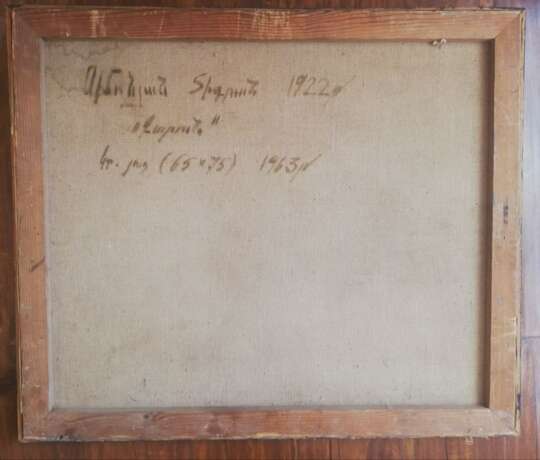 Սիմոնյան Տիգրան 1922թ
„Գարուն"
կտ. յուղ (65x75) 1963թ